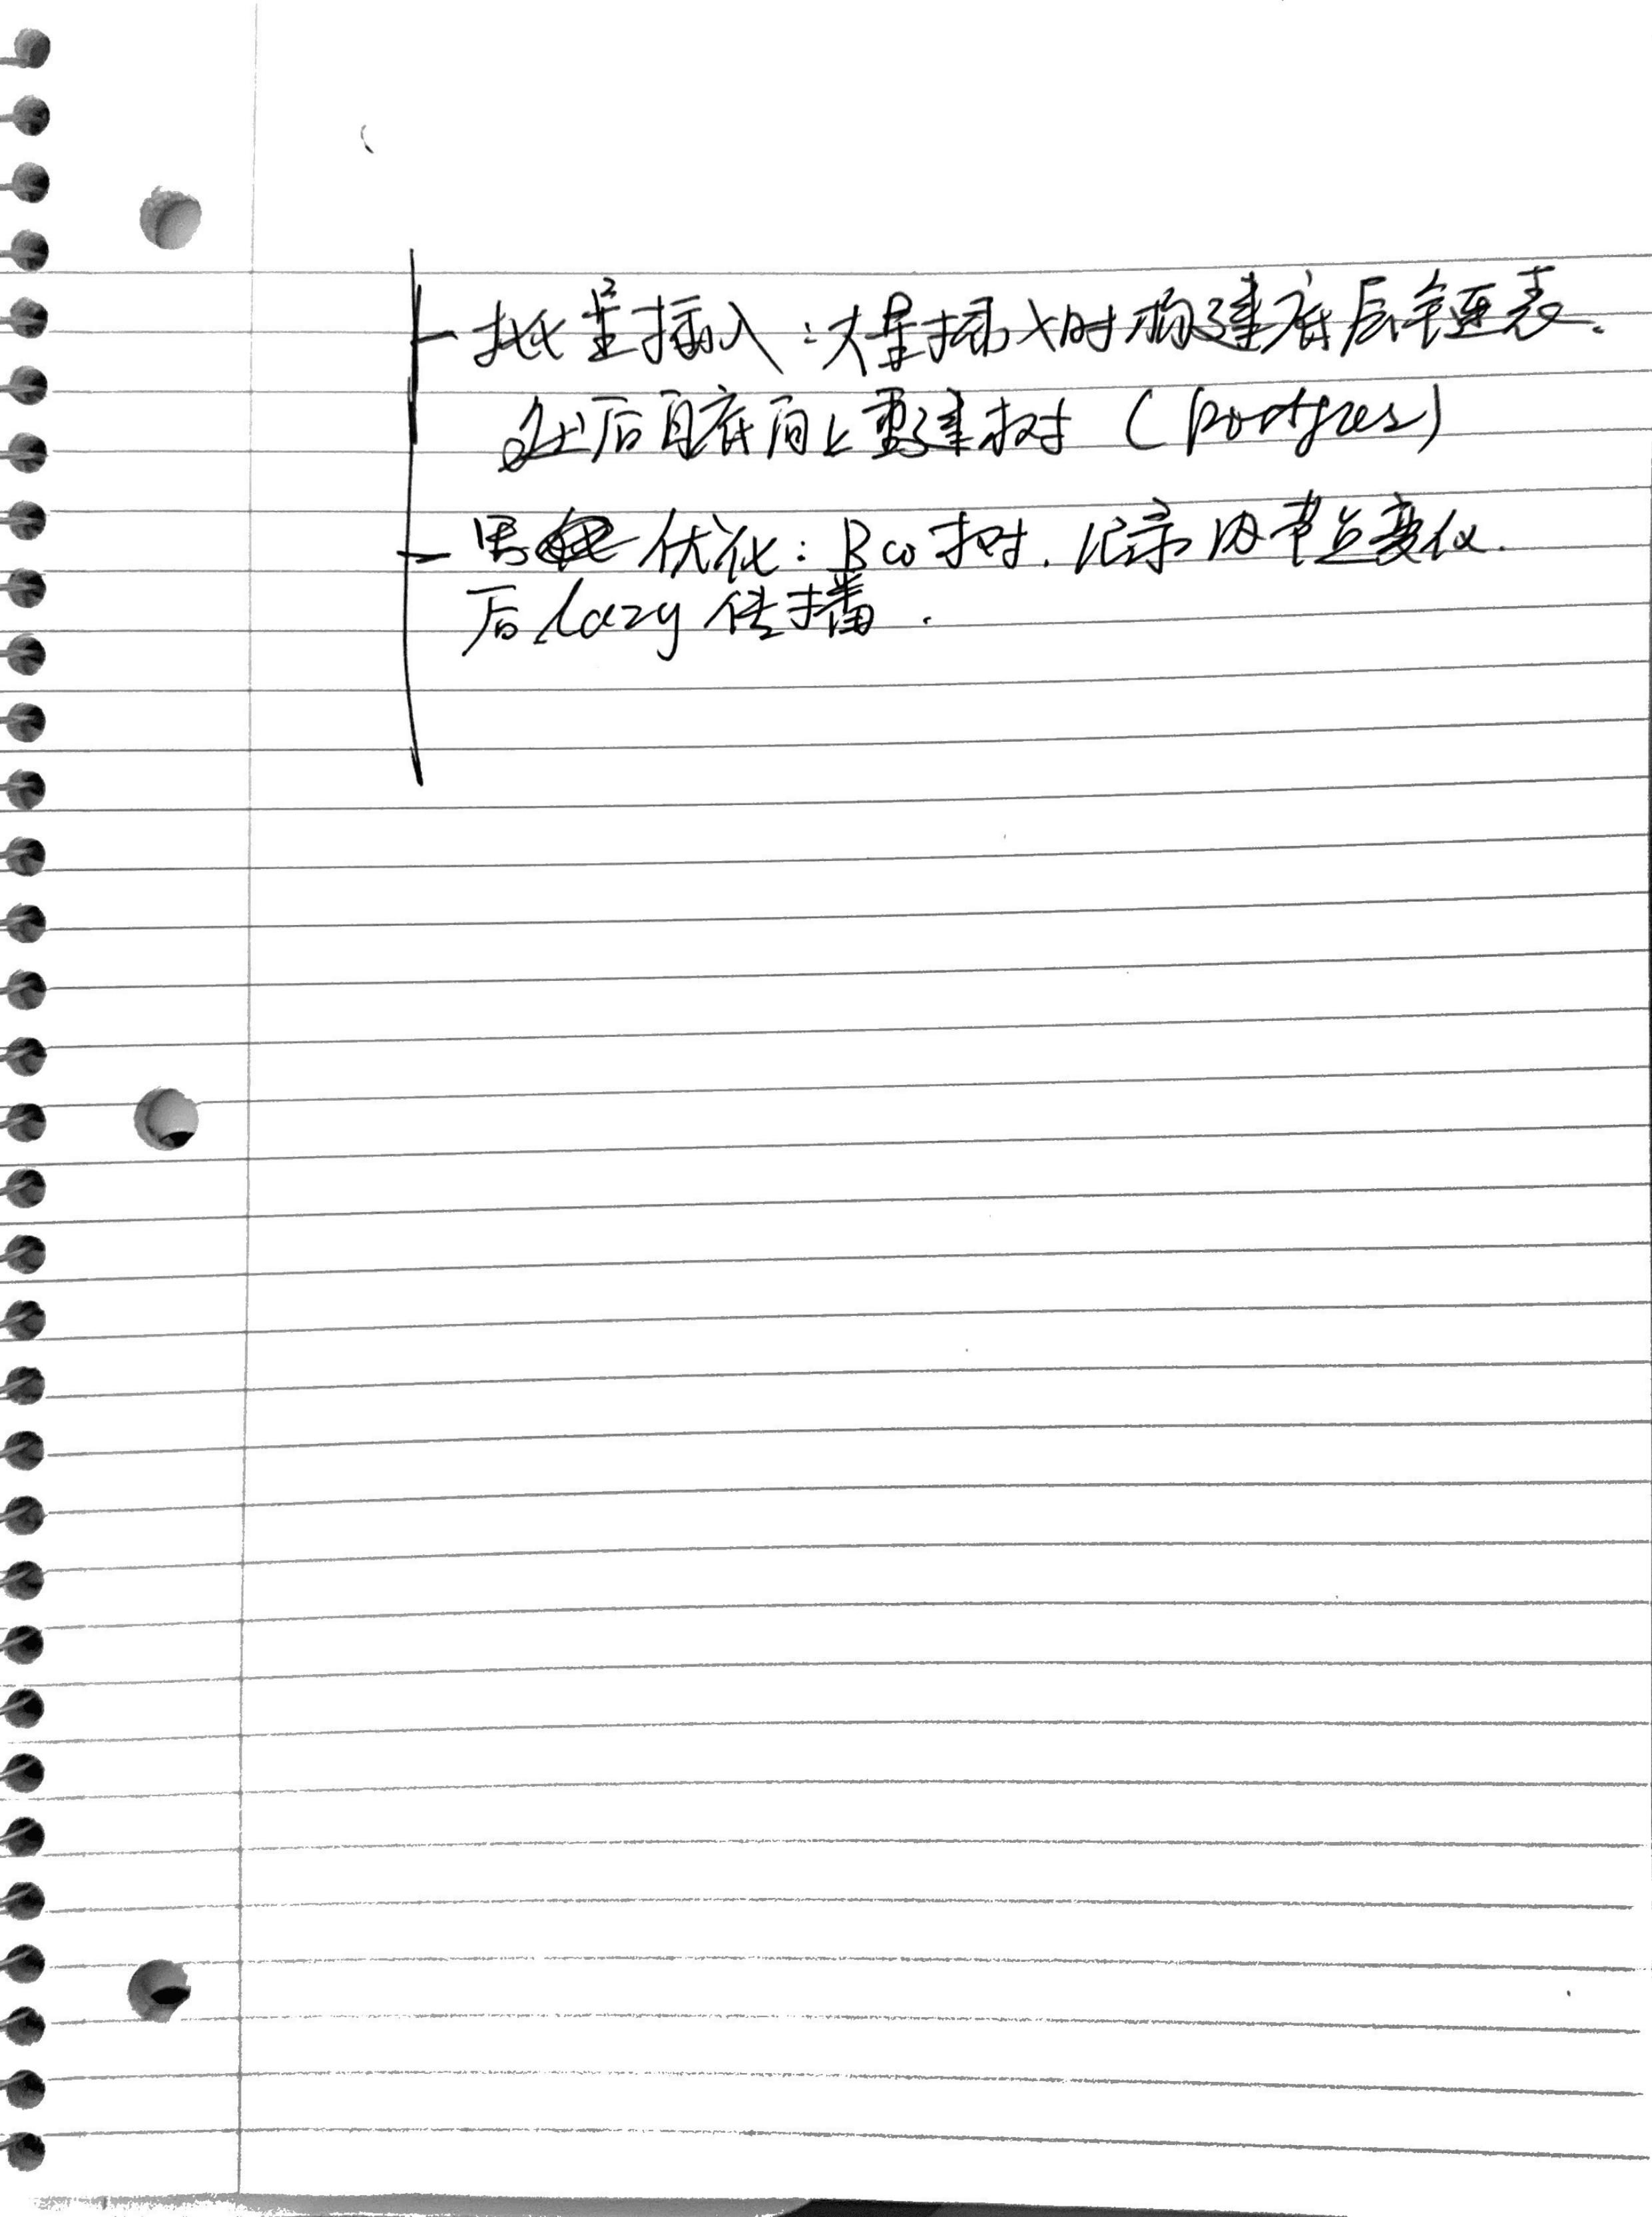 批量插入：大量插入时构建底层链表.
然后自底向上重建树 (Postgres)
写优化：Bω树. 记录内节点变化.
后lazy传播.